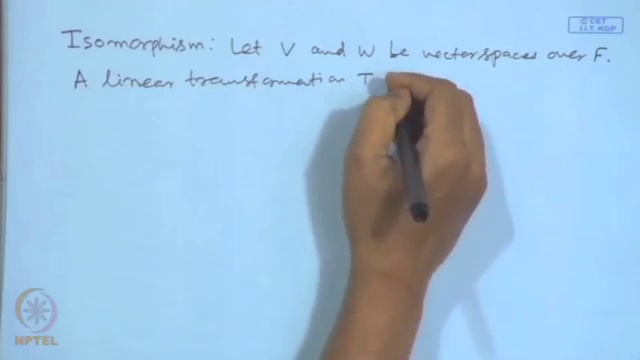 © CET
I.I.T. KGP
Isomorphism: Let V and W be vector spaces over F.
A linear transformation T
NPTEL